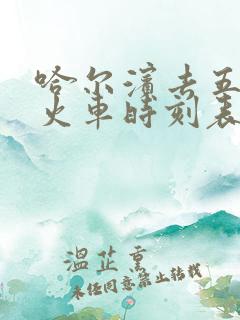 哈尔滨去五
火车时刻表
温芷熏
未经同意禁止转载